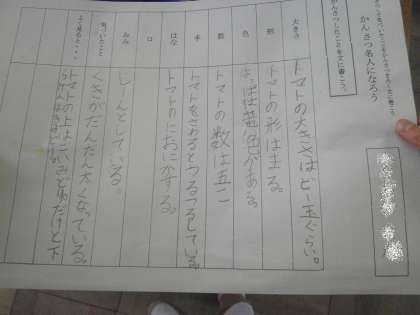 かんさつ名人になろう
かんさつしたことを文に書こう。
大きさ
トマトの大きさはビー玉ぐらい。
形
トマトの形はまる。
色
はっぱは黄色がある。
数
トマトの数は五こ
手
トマトをさわるとつるつるしている。
はな
トマトのにおいがする。
口
みみ
しーんとしている。
気づいたこと
くきがだんだん太くなっている。
よく見ると・・・
トマトの上はこいみどりだけど下